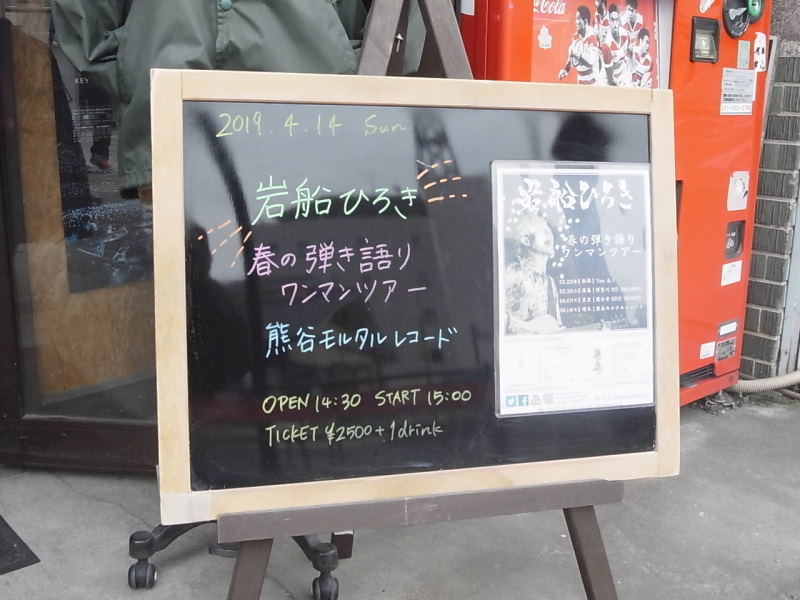 2019.4.14 Sun
岩船ひろき
春の弾き語り
ワンマンツアー
熊谷モルタルレコード
OPEN 14:30 START 15:00
TICKET ¥2500+1drink
岩船ひろき
春の弾き語り
ワンマンツアー
KEY
Cola